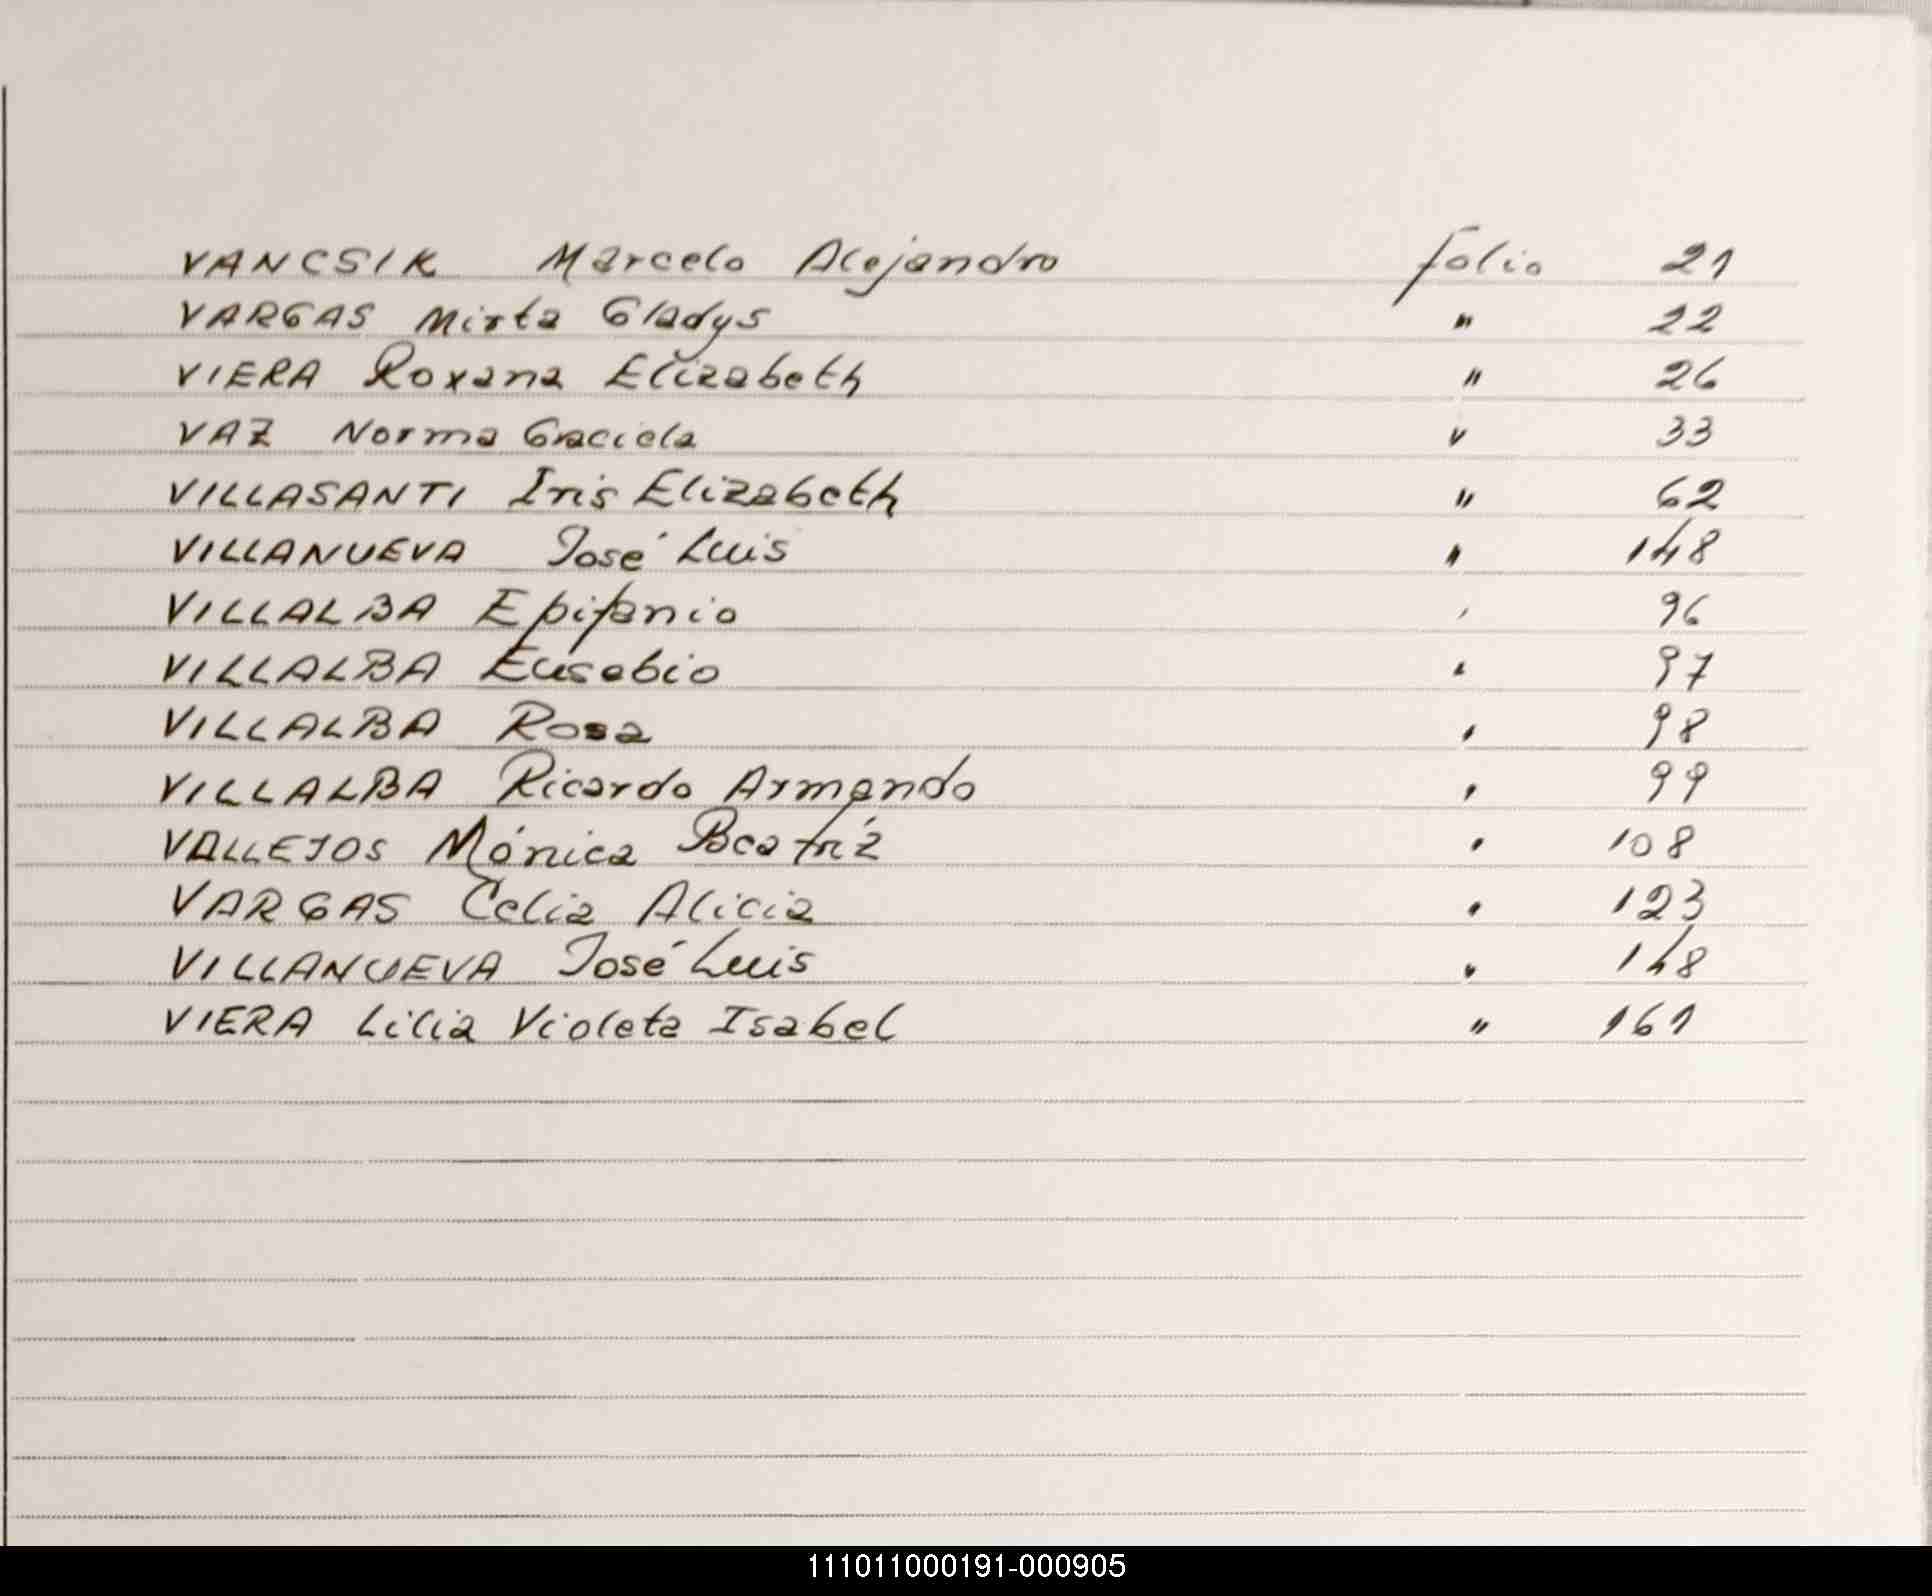 VANCSIK Marcelo Alejandro folio 21
VARGAS Mirta Gladys " 22
VIERA Roxana Elizabeth " 26
VAZ Norma Graciela " 33
VILLASANTI Iris Elizabeth " 62
VILLANUEVA José Luis " 148
VILLALBA Epifanio " 96
VILLALBA Eusebio " 97
VILLALBA Rosa " 98
VILLALBA Ricardo Armando " 99
VALLEJOS Mónica Beatríz " 108
VARGAS Celia Alicia " 123
VILLANUEVA José Luis " 148
VIERA Lilia Violeta Isabel " 161
111011000191-000905